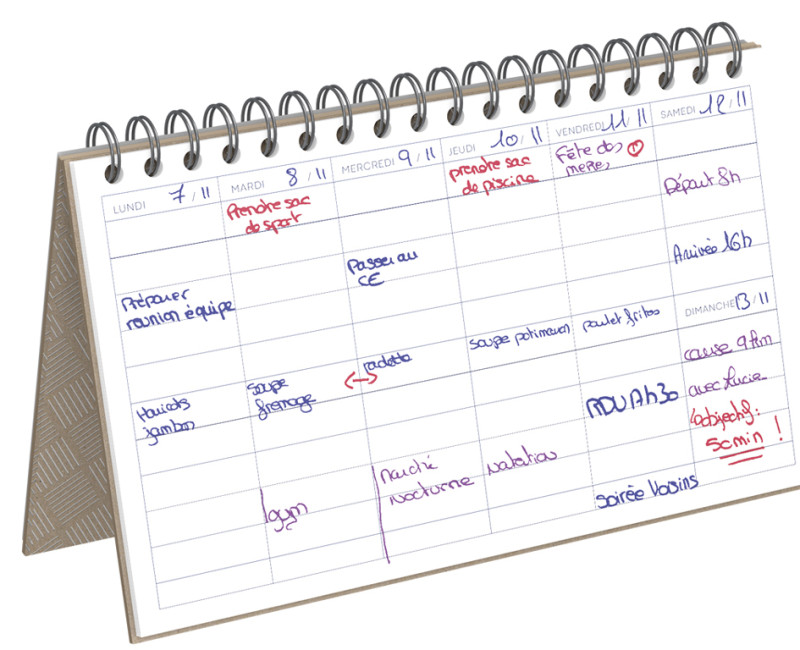 LUNDI 7/11
Préparer
reunion équipe
Haricots
jambon
MARDI 8/11
Prendre sac
de sport
soupe
fromage
gym
MERCREDI 9/11
Passer au
CE
raclette
marché
nocturne
JEUDI 10/11
prendre sac
de piscine
soupe potimarron
natation
VENDREDI 11/11
Fête des
poulet frites
RDV 17h30
soirée Voisins
SAMEDI 12/11
Départ 8h
Arrivée 16h
DIMANCHE 13/11
course 9km
avec Lucie
objectif:
50min !